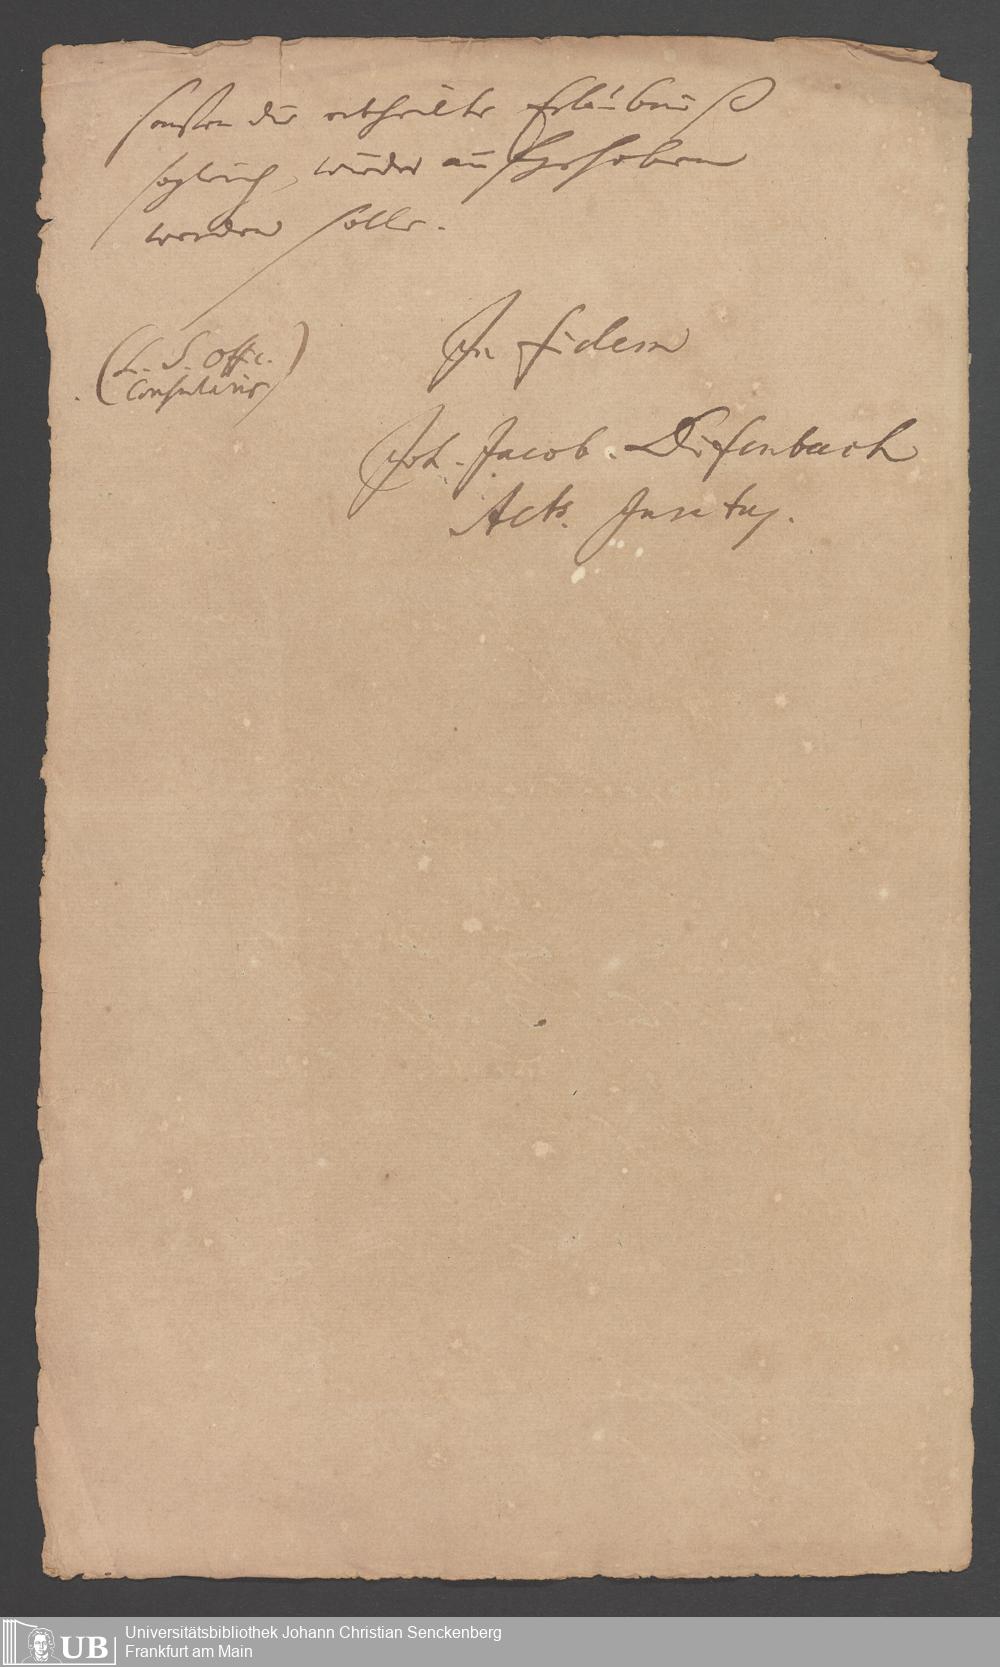 sonsten die ertheilte Erlaubnüß
sogleich, wieder aufgehoben
werden solle.
(L. S. offic.
Consularis)
In fidem
Joh. Jacob. Diefenbach
Acts. Jur.
UB
Universitätsbibliothek Johann Christian Senckenberg
Frankfurt am Main